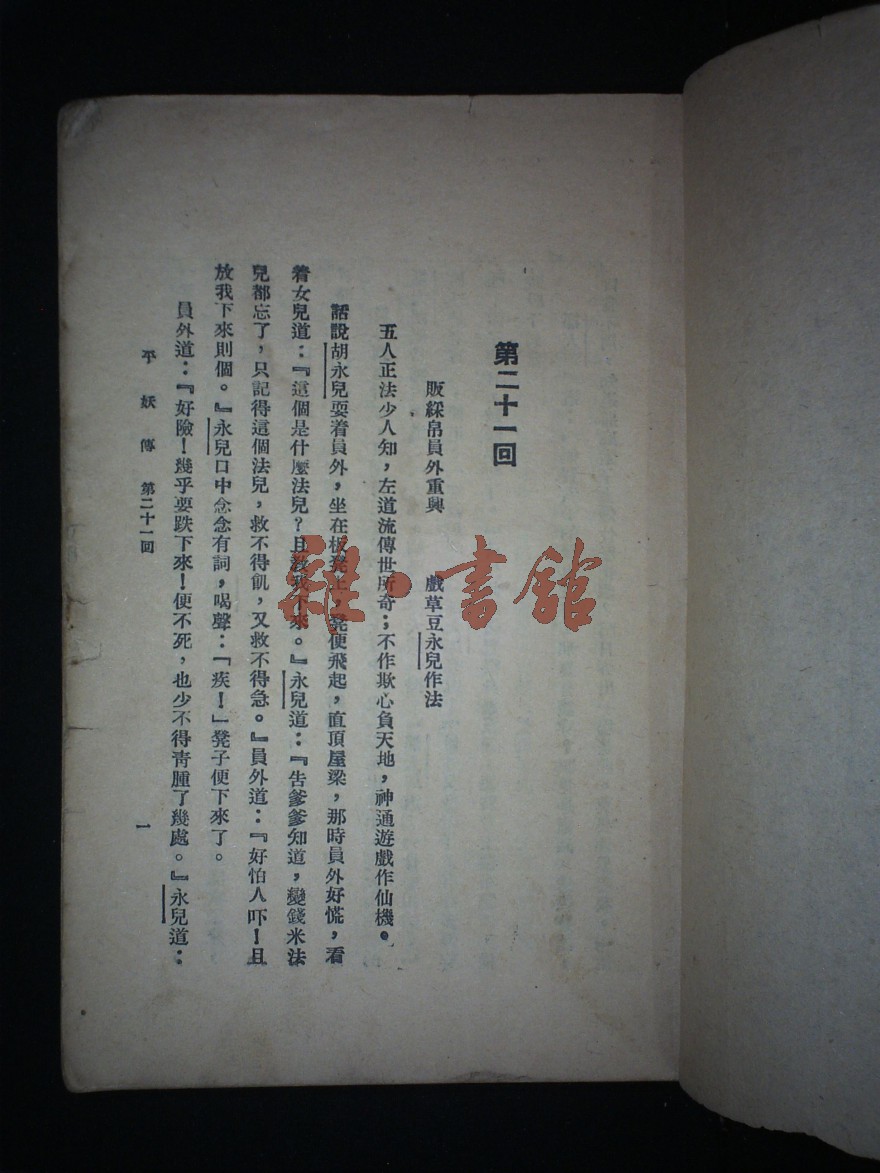 第二十一回
販綵帛員外重興　戲草豆永兒作法
五人正法少人知，左道流傳世所奇；不作欺心負天地，神通遊戲作仙機。
話說胡永兒耍着員外，坐在板凳上，凳便飛起，直頂屋梁，那時員外好慌，看
着女兒道：『這個是什麼法兒？且教我下來。』永兒道：『告爹爹知道，變錢米法
兒都忘了，只記得這個法兒，救不得飢，又救不得急。』員外道：『好怕人吓！且
放我下來則個。』永兒口中念念有詞，喝聲：「疾！」凳子便下來了。
員外道：『好險！幾乎要跌下來！便不死，也少不得靑腫了幾處。』永兒道：
平妖傳　第二十一回
一
雜·書館